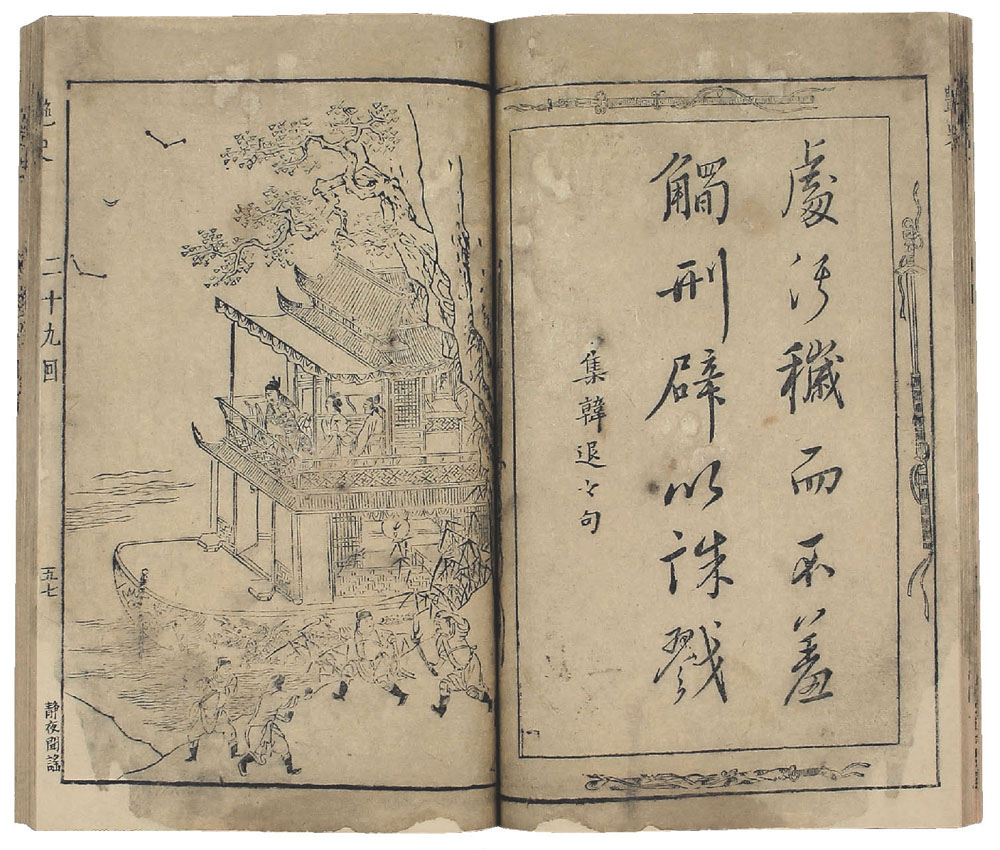 處污穢而不羞
觸刑辟以誅戮
集韓退之句
艷史
二十九回
五七
靜夜聞謠